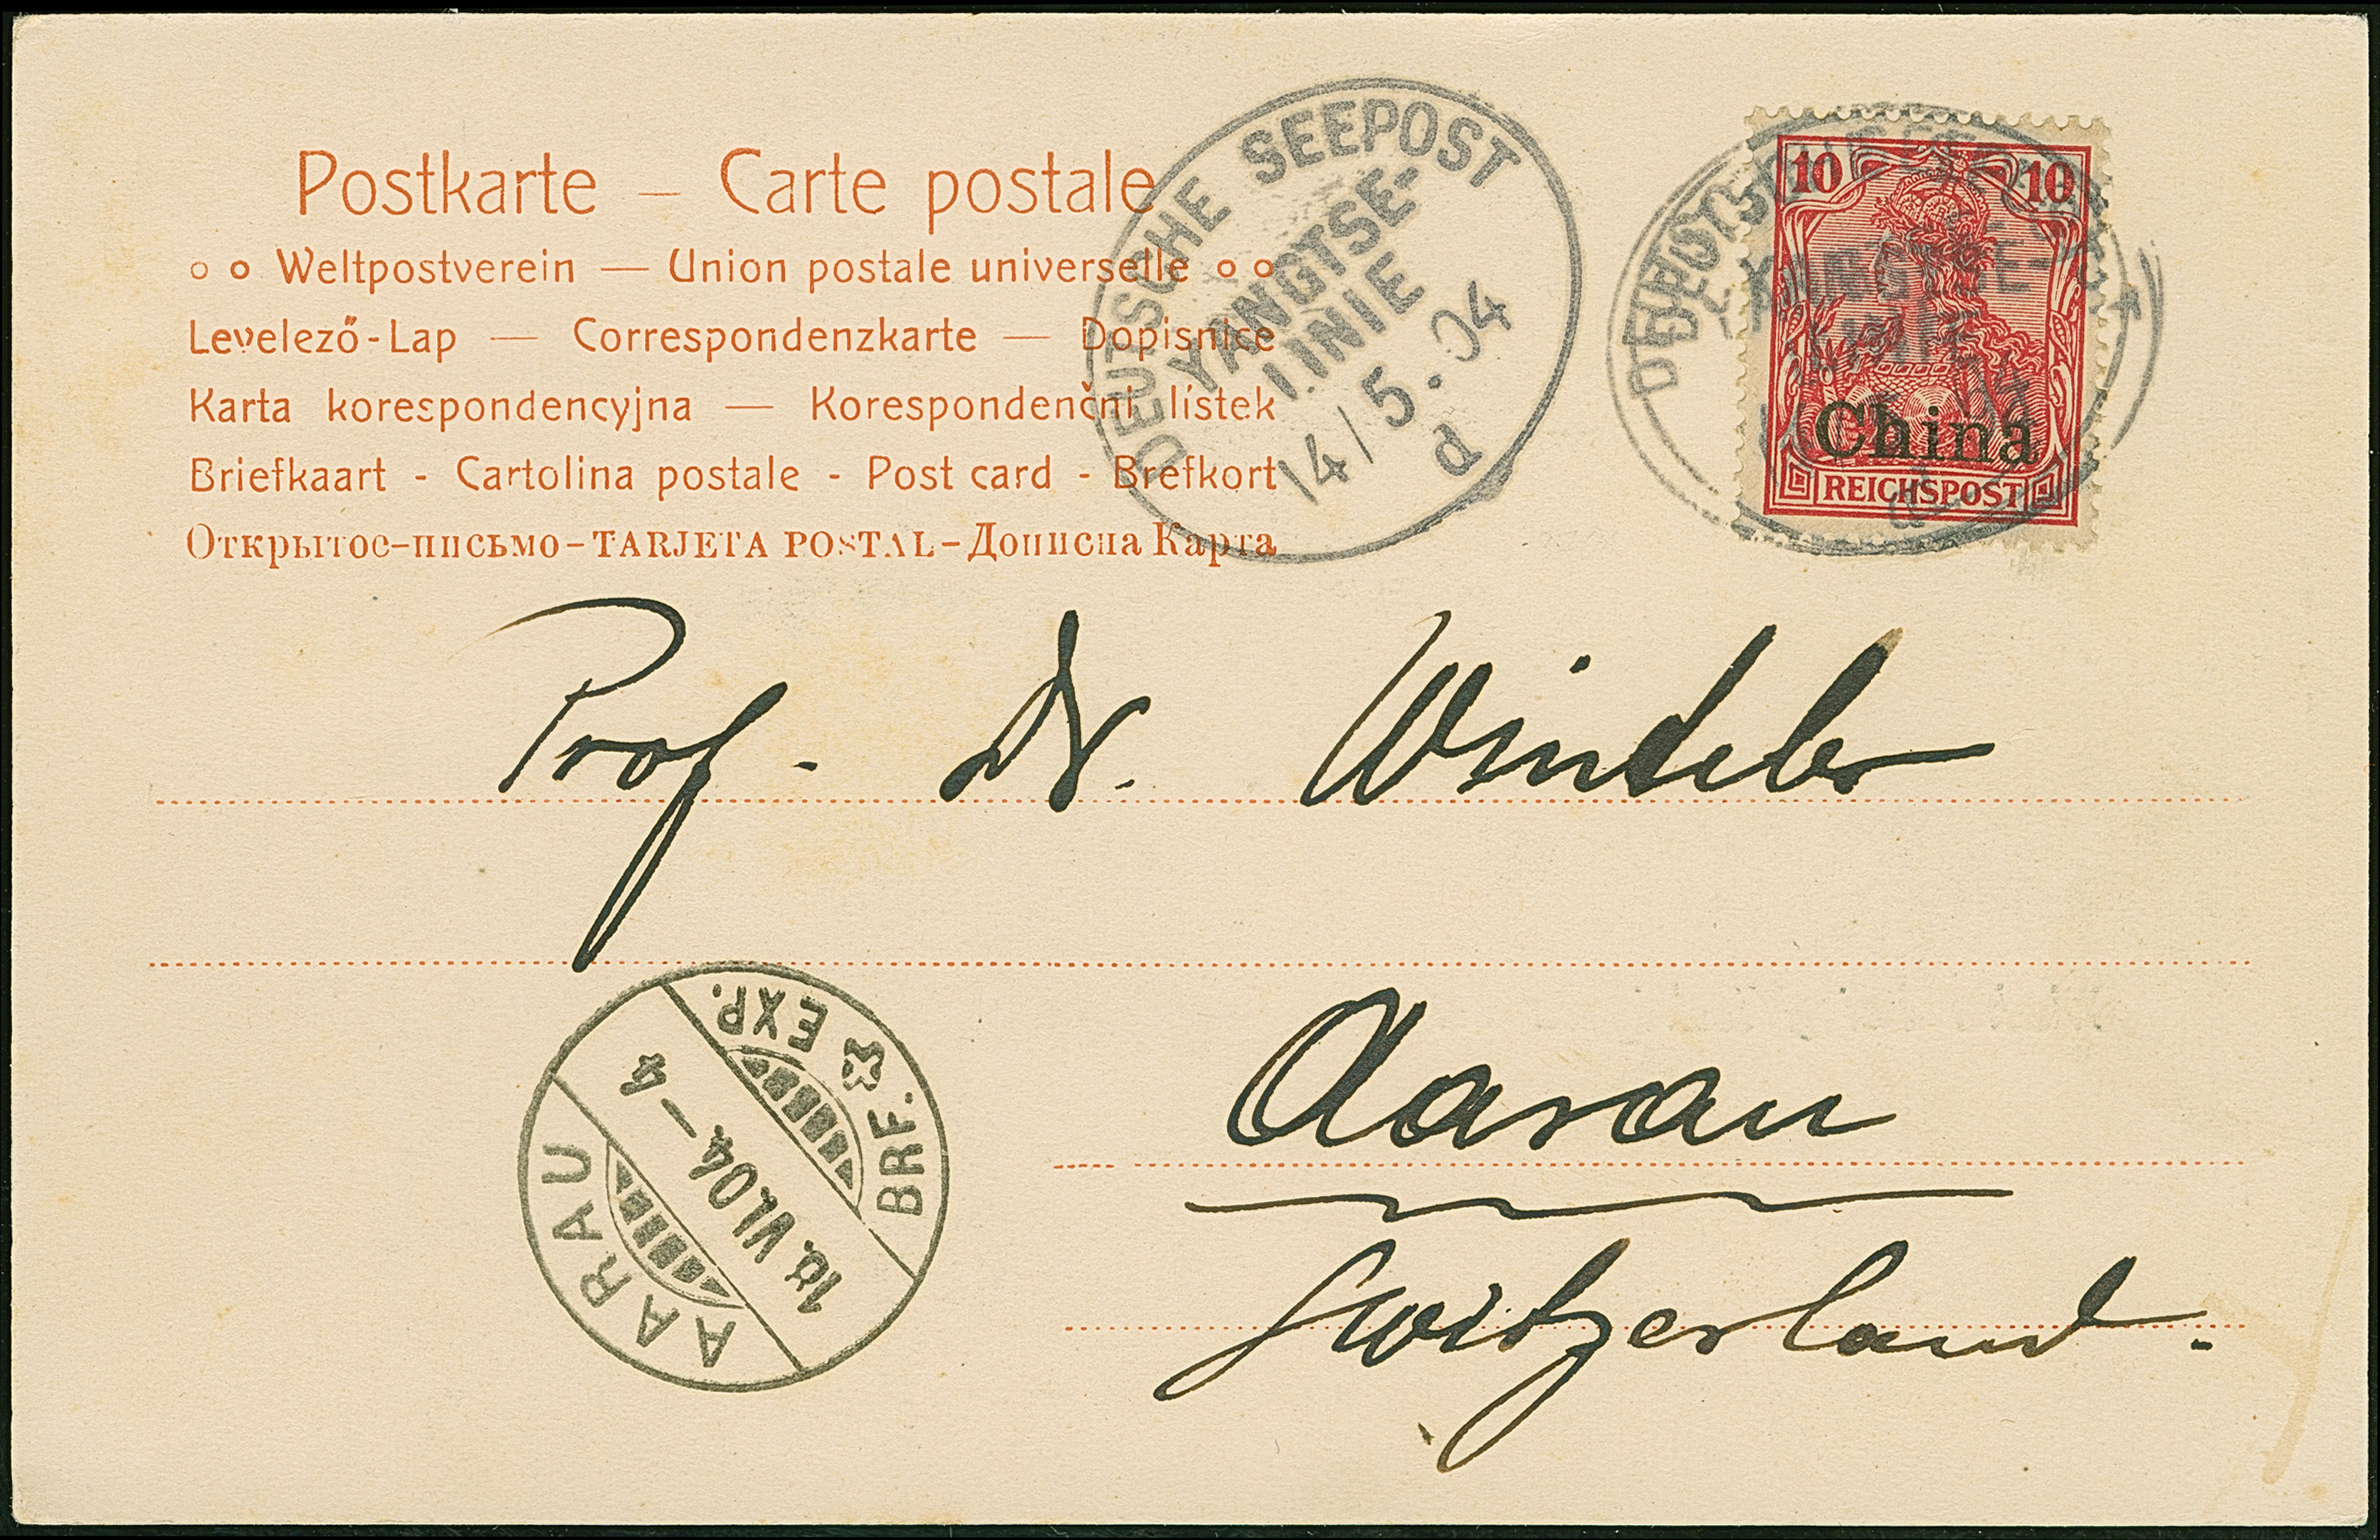 Postkarte – Carte postale
Weltpostverein — Union postale universelle
Levelező-Lap — Correspondenzkarte — Dopisnice
Karta korespondencyjna — Korespondenčni lístek
Briefkaart - Cartolina postale - Post card - Brefkort
Открытое-письмо - TARJETA POSTAL - Дописна Карта
DEUTSCHE SEEPOST
YANGTSE-
LINIE
14/5.04
d
10 10
China
REICHSPOST
Prof. Dr. Winteler
Aarau
Switzerland.
AARAU
VI.04 – 4
BRF. EXP.